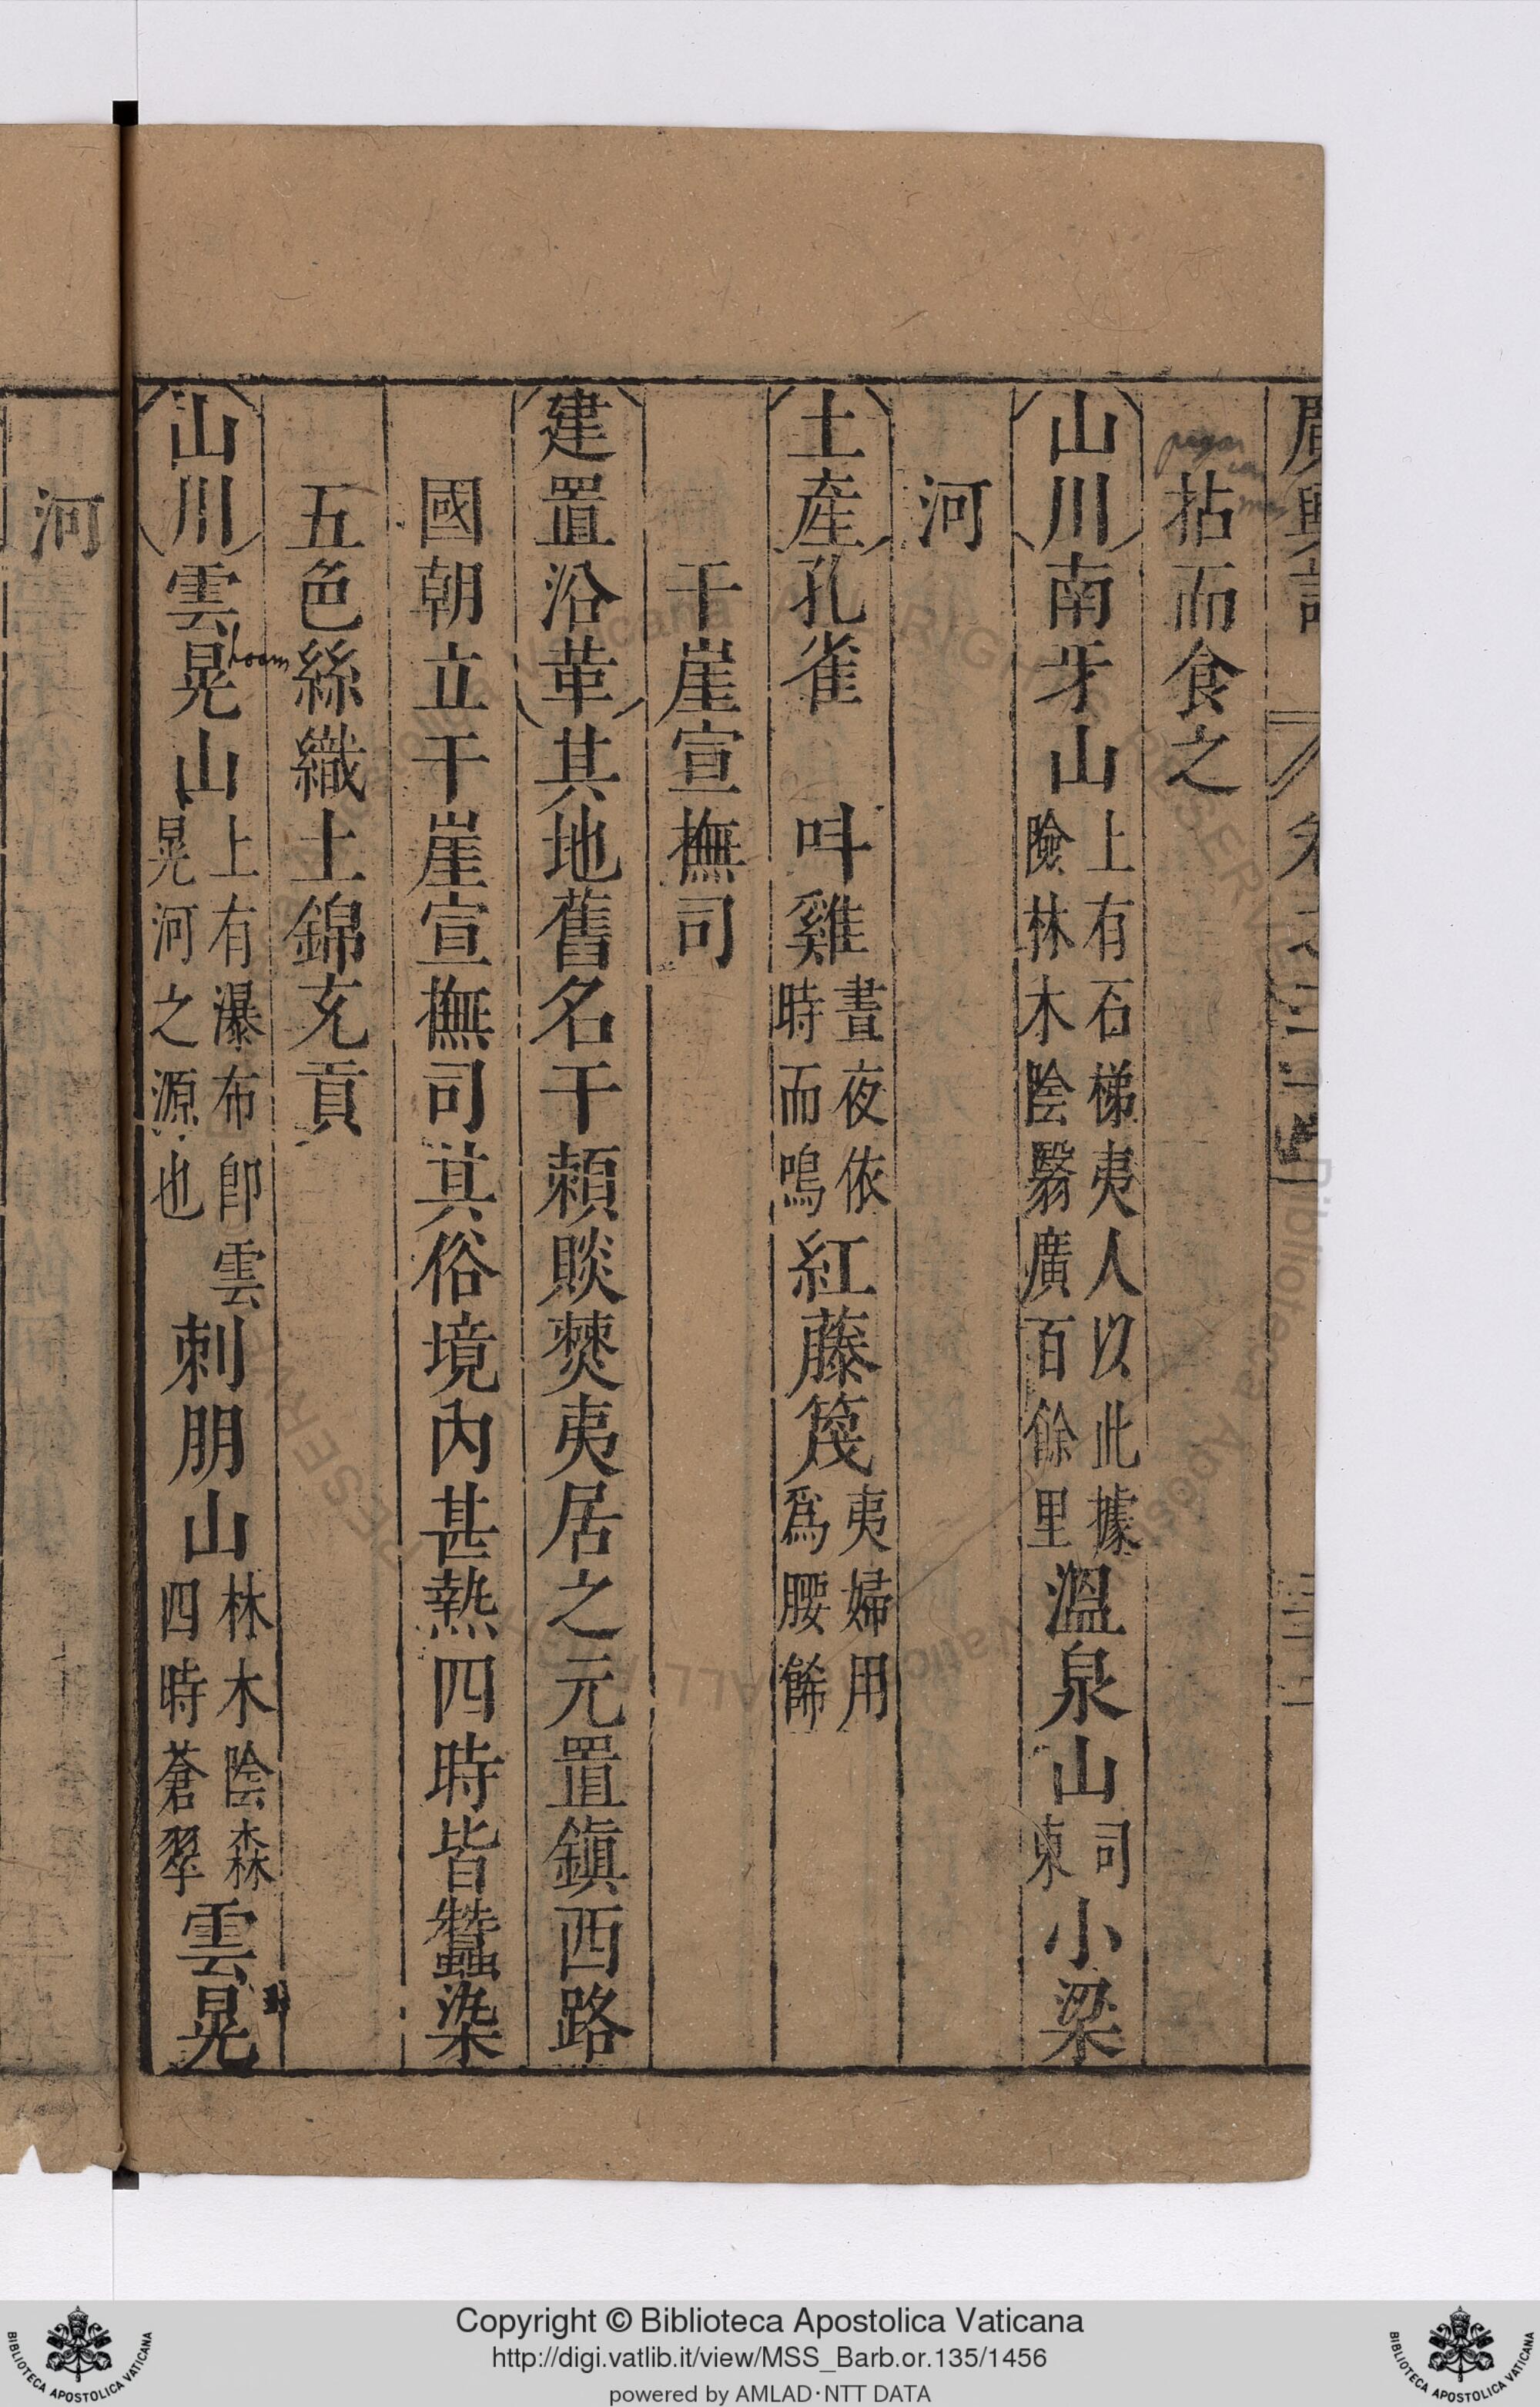 廣輿記 卷之二十一 三十二
拈而食之
山川南牙山上有石梯夷人以此據險林木陰翳廣百餘里溫泉山司東小梁
河
土産孔雀 呌雞晝夜依時而鳴紅藤篾夷婦用爲腰餙
干崖宣撫司
建置沿革其地舊名干賴賧僰夷居之元置鎭西路
國朝立干崖宣撫司其俗境内甚熱四時皆蠶染
五色絲織土錦充貢
山川雲晃山上有瀑布卽雲晃河之源也刺朋山林木陰森四時蒼翠雲晃
河
hoam
Copyright © Biblioteca Apostolica Vaticana
http://digi.vatlib.it/view/MSS_Barb.or.135/1456
powered by AMLAD·NTT DATA
BIBLIOTECA APOSTOLICA VATICANA
BIBLIOTECA APOSTOLICA VATICANA